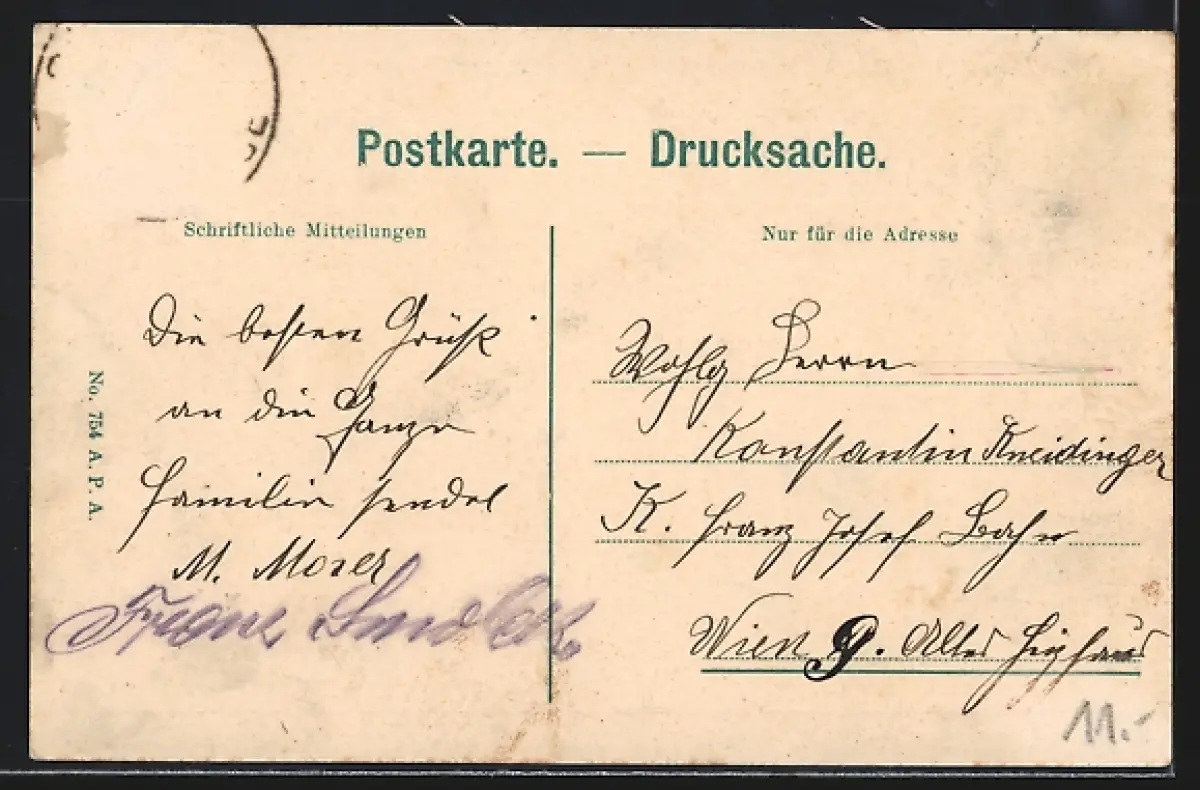 Postkarte. — Drucksache.
Schriftliche Mitteilungen
Die besten Grüße
an die Ganze
Familie sendet
M. Moser
Franz
No. 754 A. P. A.
Nur für die Adresse
Wohlg Herrn
Konstantin Kneidinger
K. Franz Josef Bahn
Wien 9. Altes
11.-